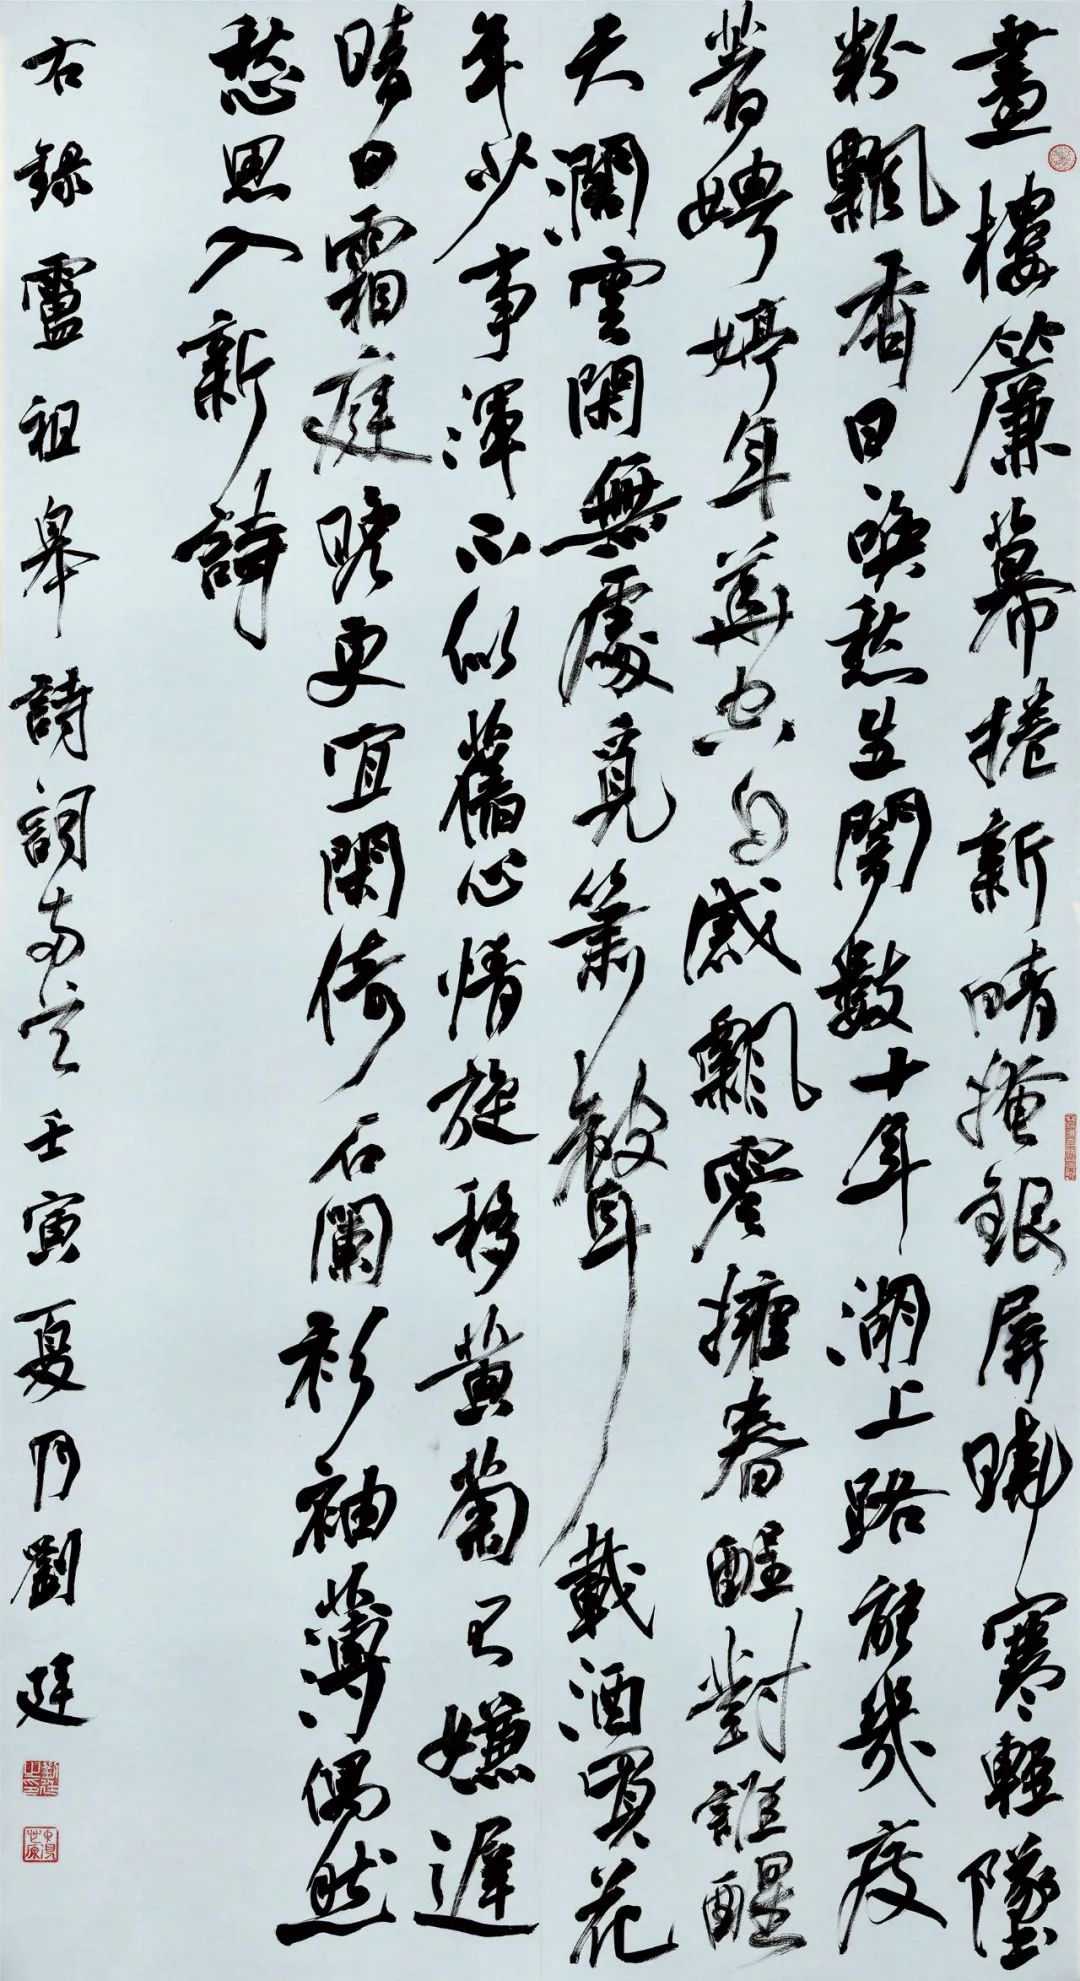 畫樓簾幕捲新晴掩銀屏曉寒輕墜
粉飄香日喚愁生闇數十年湖上路能幾度
著娉婷年華空自感飄零擁春酲對誰醒
天闊雲閑無處覓簫聲載酒買花
年少事渾不似舊心情旋移黃菊已嫌遲
晴日霜庭晚更宜閑倚石闌衫袖薄偶然
愁思入新詩
右錄盧祖皋詩詞兩壬寅夏月劉廷